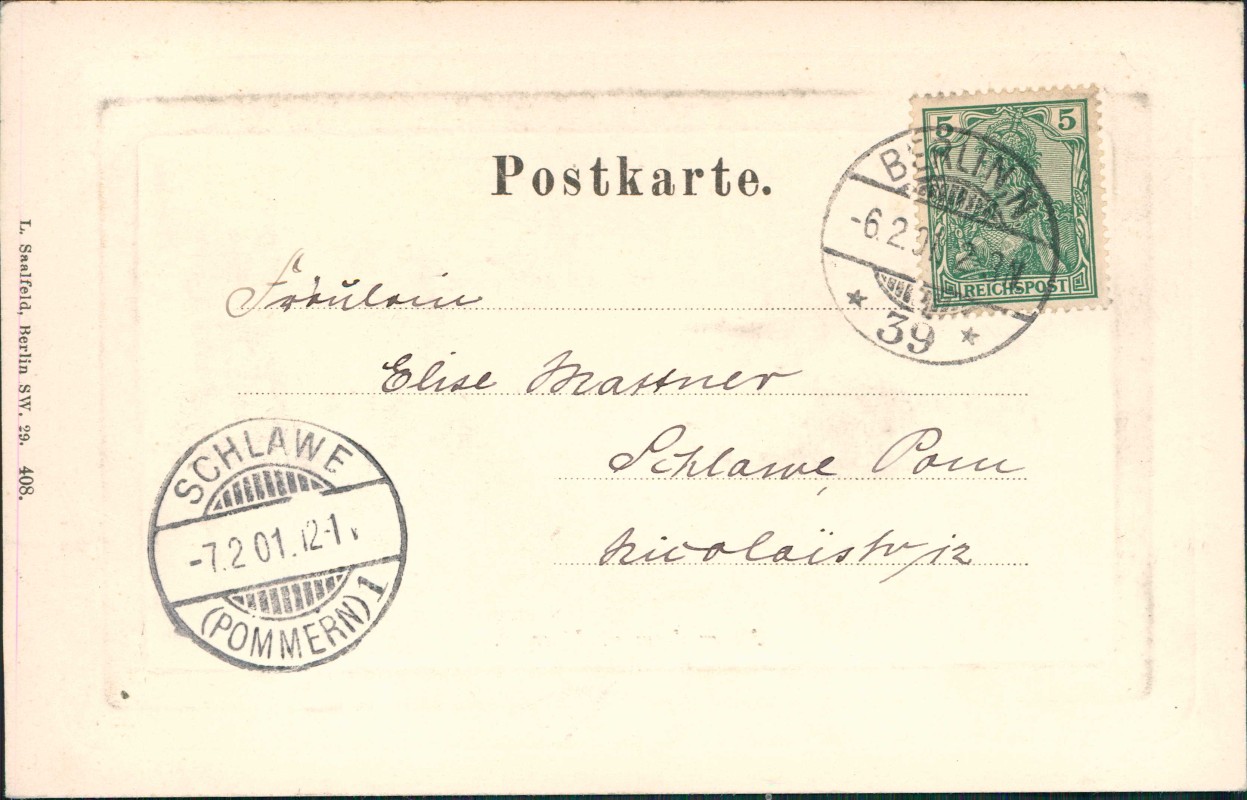 Postkarte.
5 5
REICHSPOST
BERLIN N
-6.2.01. 2-3N
* 39 *
Fräulein
Elise Mattner
Schlawe, Pom
Nicolaistr 12
SCHLAWE
-7.2.01.12-1
(POMMERN) 1
L. Saalfeld, Berlin SW. 29. 408.